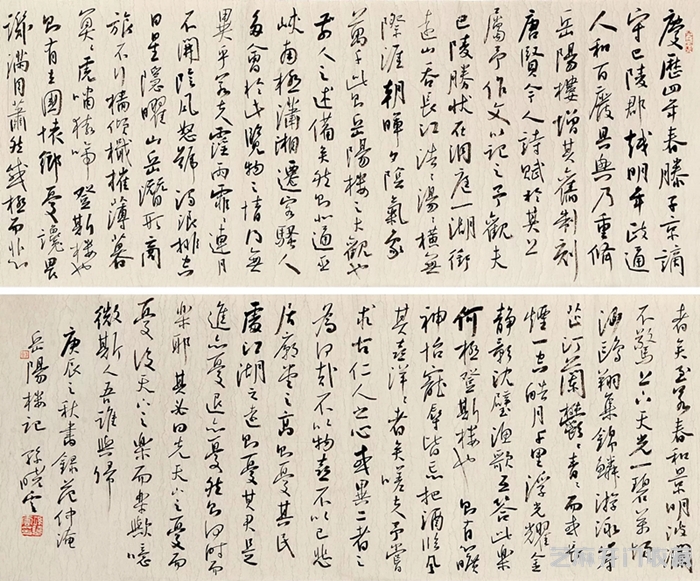 慶曆四年春滕子京謫
守巴陵郡越明年政通
人和百廢具興乃重脩
岳陽樓增其舊制刻
唐賢今人詩賦於其上
屬予作文以記之予觀夫
巴陵勝狀在洞庭一湖銜
遠山吞長江浩浩湯湯橫無
際涯朝暉夕陰氣象
萬千此則岳陽樓之大觀也
前人之述備矣然則北通巫
峽南極瀟湘遷客騷人
多會於此覽物之情得無
異乎若夫霪雨霏霏連月
不開陰風怒號濁浪排空
日星隱曜山岳潛形商
旅不行檣傾檝摧薄暮
冥冥虎嘯猿啼登斯樓也
則有去國懷鄉憂讒畏
譏滿目蕭然感極而悲
者矣至若春和景明波瀾
不驚上下天光一碧萬頃
鷗翔集錦鱗游泳岸
芷汀蘭鬱鬱青青而或長
煙一空皓月千里浮光耀金
靜影沈璧漁歌互答此樂
何極登斯樓也則有曠
神怡寵辱皆忘把酒臨風
其喜洋洋者矣嗟夫予嘗
求古仁人之心或異二者之
為何哉不以物喜不以己悲
居廟堂之高則憂其民
處江湖之遠則憂其君是
進亦憂退亦憂然則何時而
樂耶其必曰先天下之憂而
憂後天下之樂而樂歟噫
微斯人吾誰與歸
庚辰之秋書錄范仲淹
岳陽樓記 孫曉雲
芝麻开门收藏